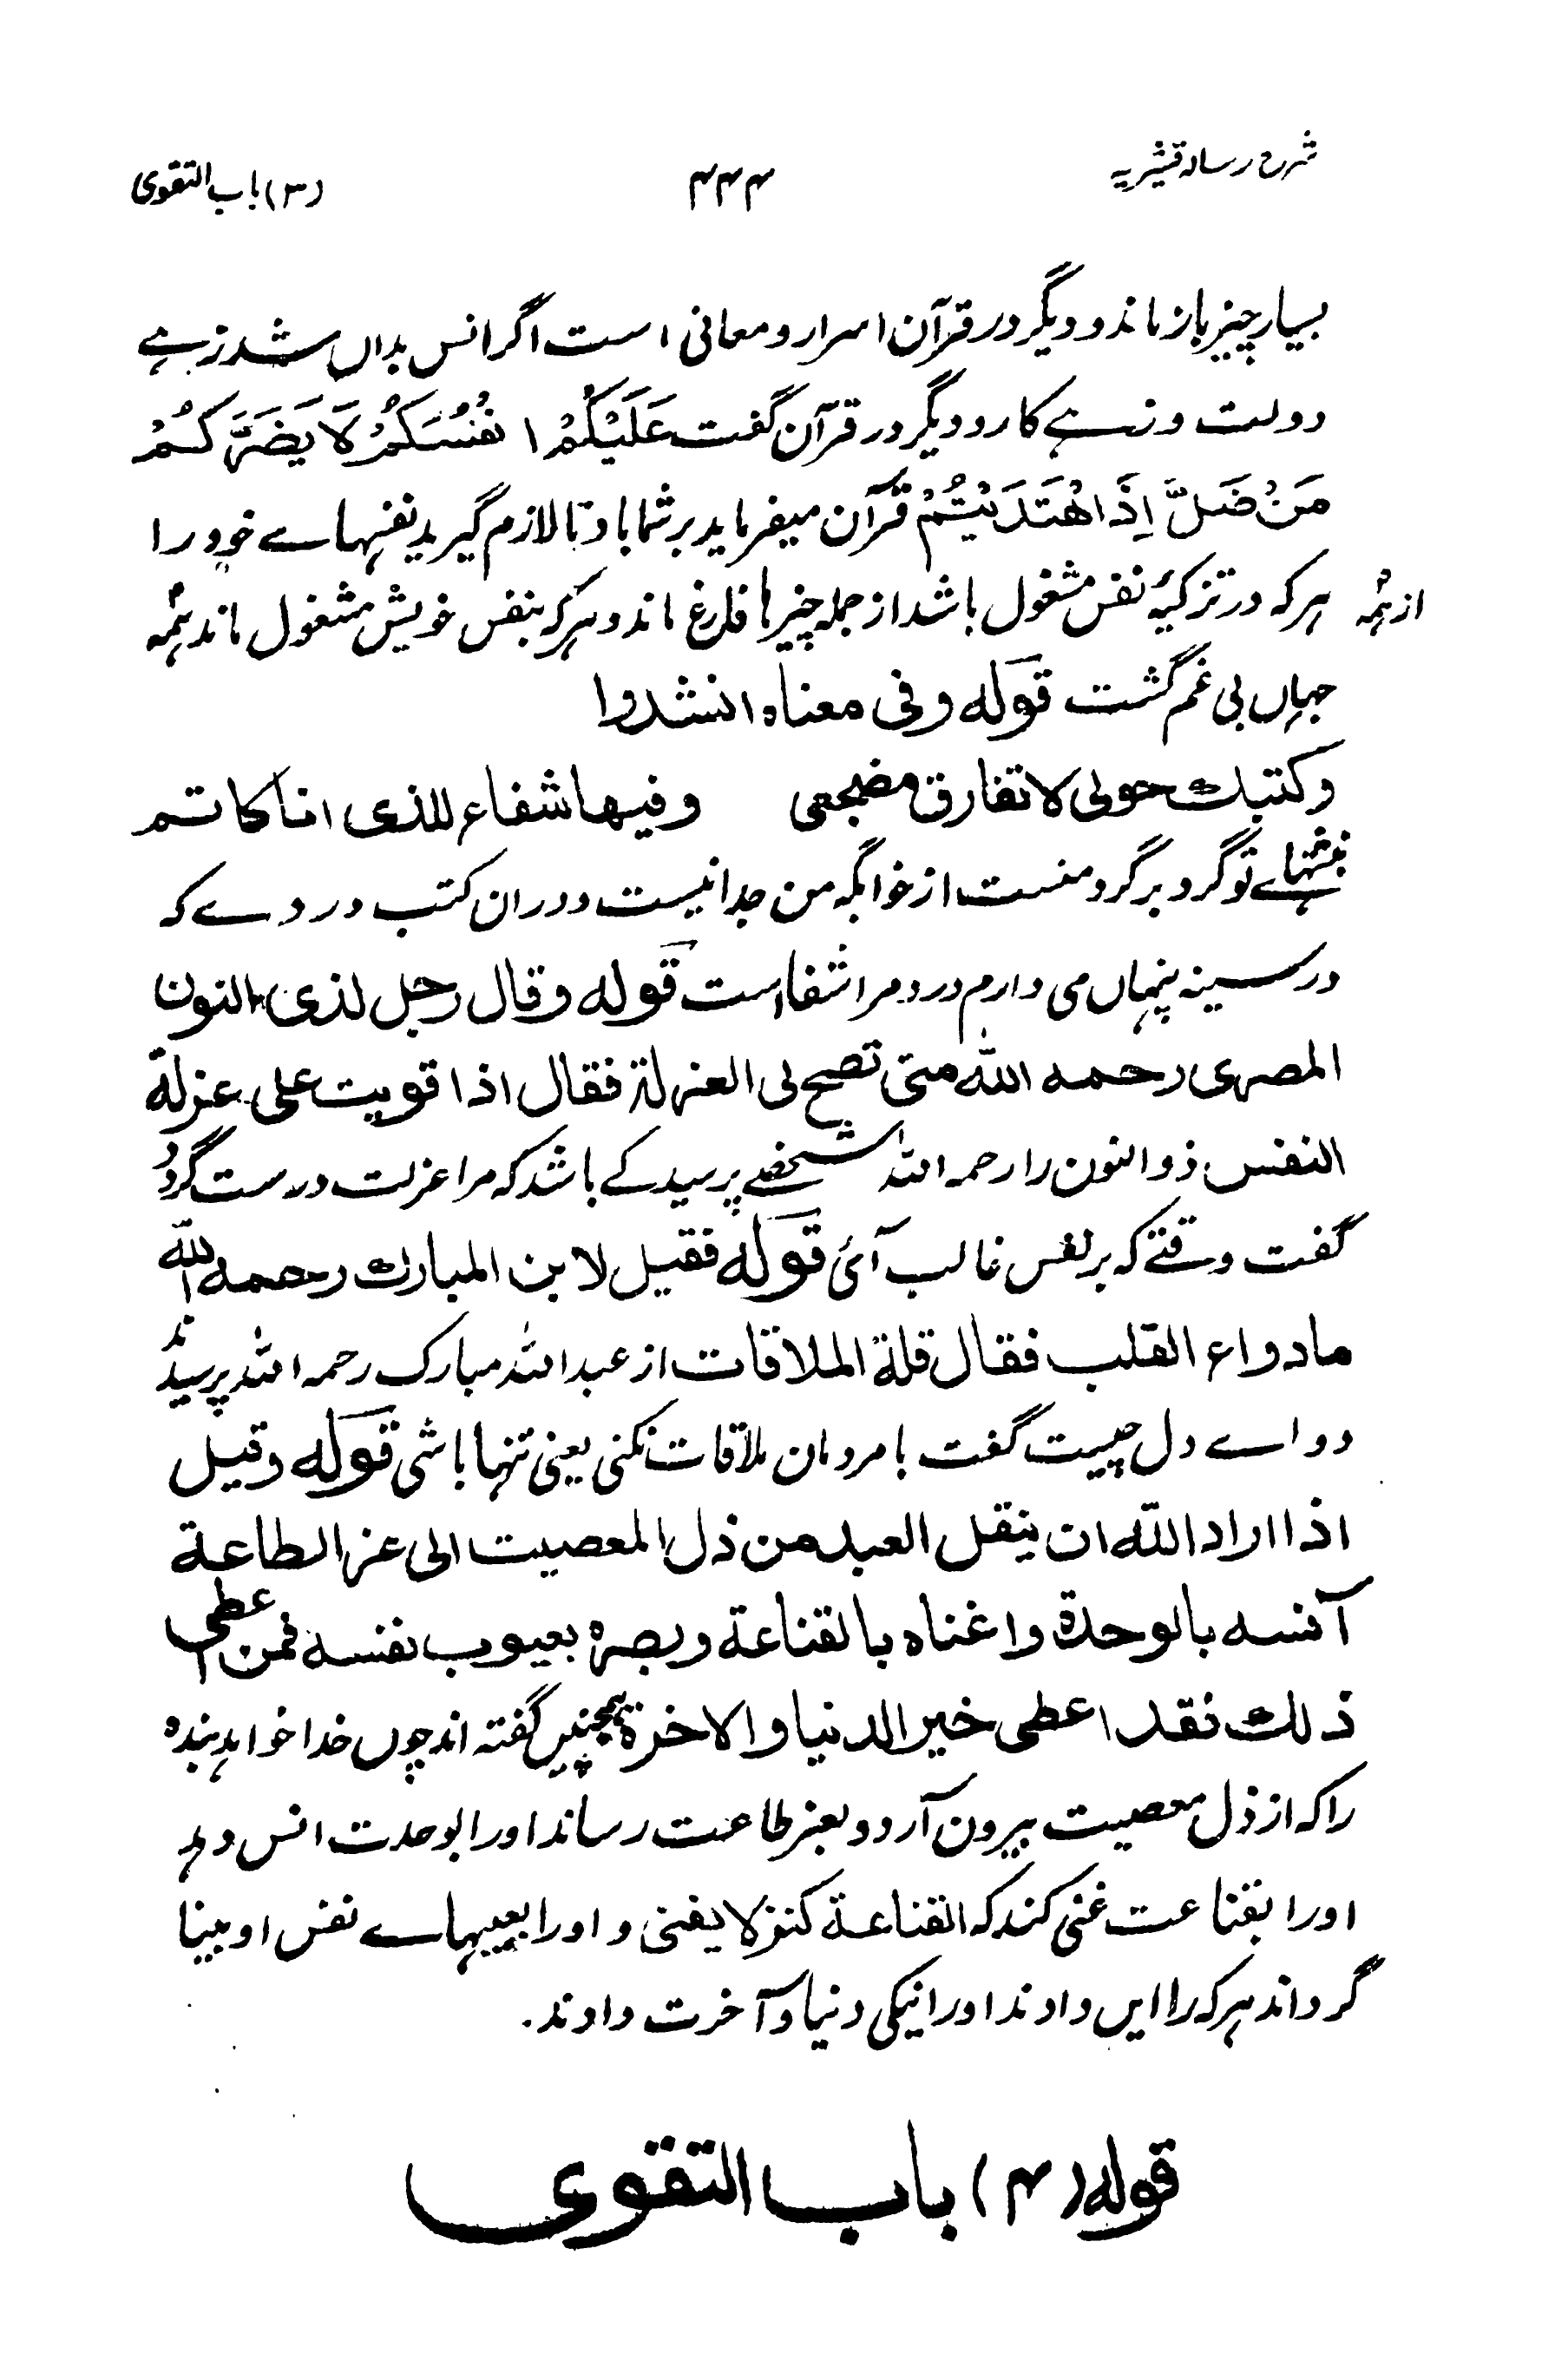 شرح رسالہ قشیریہ
۴۴۴
(۳) باب التقوی
بسیار چیز باز ماند و دیگر در قرآن اسرار و معانی است اگر انس بداں شد زہے
دولت و زہے کار و دیگر در قرآن گفت عَلَیْکُمْ اَنفُسَکُمْ لَا یَضُرَّکُمْ
مَنْ ضَلَّ اِذَا اهْتَدَیْتُمْ قرآن میفرماید بر شما باد تا لازم گیرید نفسہاے خود را
از ہمہ
ہر کہ در تزکیۂ نفس مشغول باشد از جملہ چیزہا فارغ ماند و ہر کہ بنفس خویش مشغول ماند ہمہ
جہاں بی غم گشت قولہ وفی معناہ انشدوا
وکتبك حولی لا تفارق مضجعی وفیھا شفاء للذی انا کاتم
نبشتہاے تو گرد بر گرد منست از خوابگہ من جدا نیست و دران کتب دردے کہ
در سینہ پنہاں می دارم درد مرا شفا است قولہ وقال رجل لذی النون
المصری رحمہ اللہ متی تصح لی العزلة فقال اذا قویت علی عزلة
النفس ذوالنون را رحمہ اللہ شخصے پرسید کے باشد کہ مرا عزلت درست گردد
گفت وقتے کہ بر نفس غالب آئی قولہ فقیل لابن المبارك رحمہ اللہ
ما دواء القلب فقال قلة الملاقات از عبداللہ مبارک رحمہ اللہ پرسیدند
دواے دل چیست گفت با مردمان ملاقات نکنی یعنی تنہا باشی قولہ وقیل
اذا اراد اللہ ان ینقل العبد من ذل المعصیت الی عز الطاعة
آنسه بالوحدة واغناہ بالقناعة وبصرہ بعیوب نفسه فمن اعطی
ذلك نقد اعطی خیر الدنیا والاخرة ہمچنیں گفتہ اند چوں خدا خواہد بندہ
را کہ از ذل معصیت بیرون آرد و بعز طاعت رساند او را بوحدت انس دہد
اورا بقناعت غنی کند کہ القناعة کنز لا یفنی و اورا بعیبہاے نفس او بینا
گرداند ہر کہ را ایں دادند اورا نیکی دنیا و آخرت دادند.
قوله (۴) باب التقوی